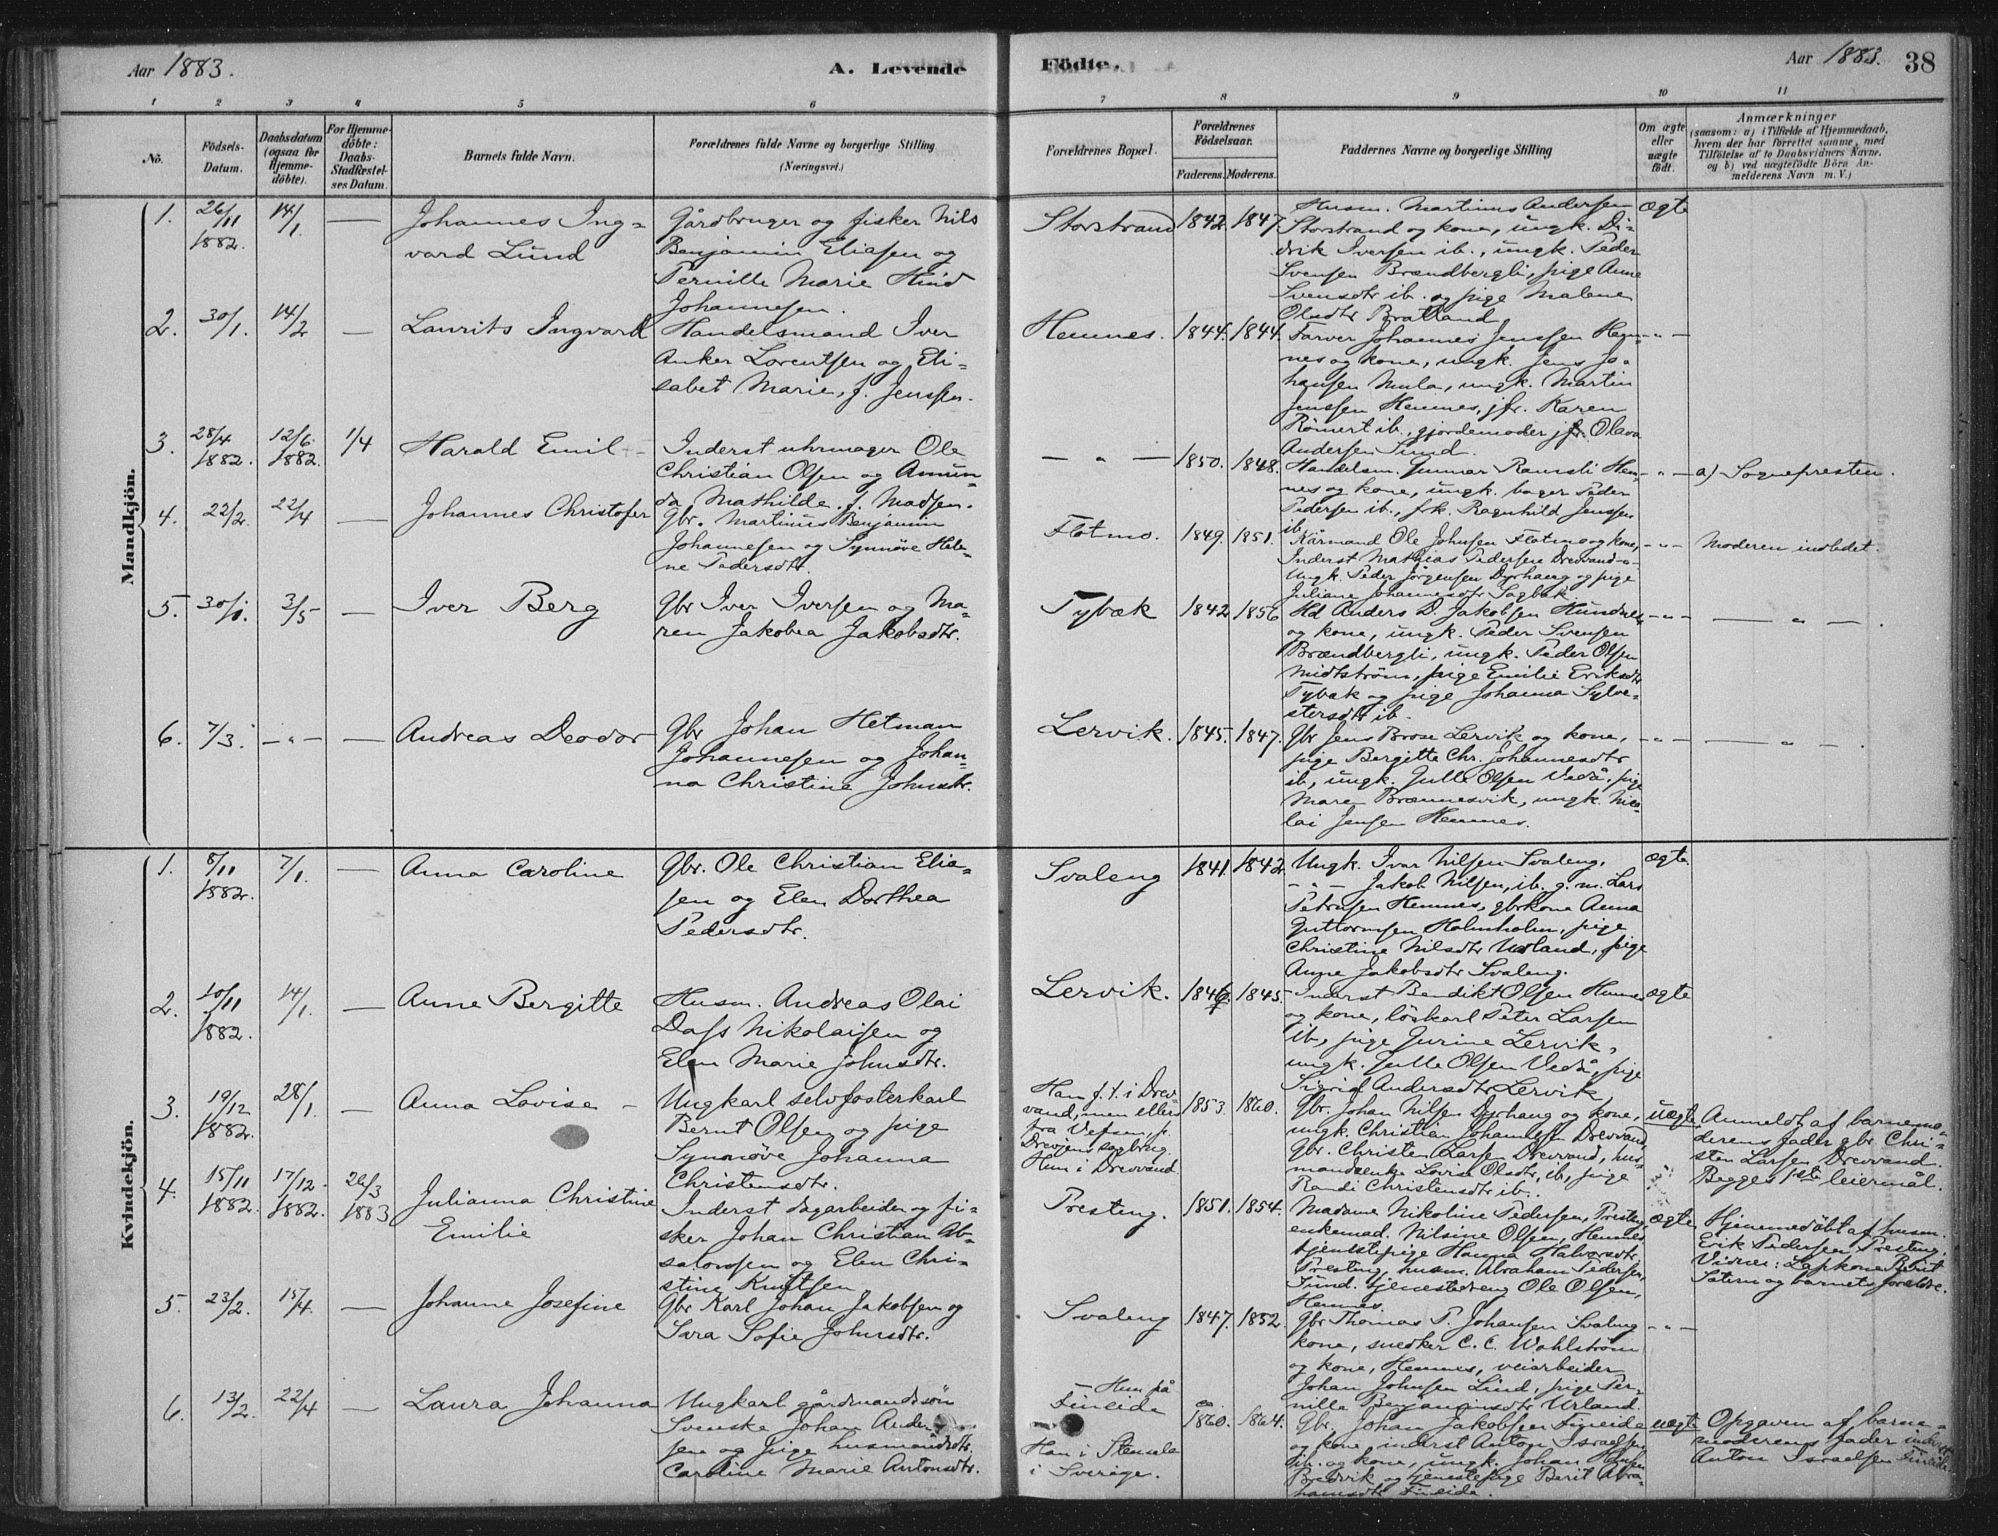 Aar 1883.
A. Levende
Födte.
Aar 1883.
38
1 2 3 4 5 6 7 8 9 10 11
No.
Födsels-
Datum.
Daabsdatum
(ogsaa for
Hjemme-
döbte).
For Hjemme-
döbte:
Daabs-
Stadfæstel-
ses Datum.
Barnets fulde Navn.
Forældrenes fulde Navne og borgerlige Stilling
(Næringsvei.)
Forældrenes Bopæl.
Forældrenes
Födselsaar.
Faderens. Moderens.
Faddernes Navne og borgerlige Stilling
Om ægte
eller
uægte
födt.
Anmærkninger
(saasom: a) i Tilfælde af Hjemmedaab,
hvem der har forrettet samme, med
Tilföielse af to Daabsvidners Navne.
og b) ved uægtefödte Börn An-
melderens Navn m. V.)
Mandkjön.
1.
26/11
1882.
14/1.
—
Johannes Ing-
vard Lund
Gårdbruger og fisker Nils
Benjamin Eliasen og
Pernille Marie Hind
Johannesen.
Storstrand
1842. 1847.
Husm. Martinus Andersen
Storstrand og kone, ungk. Di-
drik Iversen ib., ungk. Peder
Svensen Brændbergli, pige Anne
Svensdtr ib. og pige Malene
Olsdtr Bratland
Ægte
2.
30/1.
14/2
—
Laurits Ingvard
Handelsmand Iver
Anker Lorentsen og Eli-
sabet Marie, f. Jenssen.
Hemnes.
1844. 1844.
Farver Johannes Jenssen Hem-
nes og kone, ungk. Jens Jo-
hansen Mula, ungk. Martin
Jenssen Hemnes, jfr. Karen
Römert ib., gjordemoder jfr. Olava
Andersen Sund.
— " —
3.
28/4
1882.
12/6.
1882.
1/4
Harald Emil
Inderst uhrmager Ole
Christian Olsen og Amun-
da Mathilde, f. Madsen.
— " —
1850. 1848.
Handelsm. Gunnar Ramsli Hem-
nes og kone, ungk. bager Peder
Pedersen ib., frk. Ragnhild Jenssen
ib.
— " —
a) Sognepresten.
4.
22/2.
22/4
—
Johannes Christofer
Gbr. Martinus Benjamin
Johannesen og Synnöve Hele-
ne Pedersdtr.
Flotmo.
1849. 1851.
Kårmand Ole Johnsen Flotmo og kone,
Inderst Mathias Pedersen Drevvand
Ungk. Peder Jörgensen Dyrhaug og pige
Juliane Johannesdtr Sagbak.
— " —
Moderen indledet.
5.
3/5
—
Iver Berg
Gbr Iver Iversen og Ma-
ren Jakobea Jakobsdtr.
Tybæk
1842 1856
Hd Anders D. Jakobsen Hundnes
og kone, ungk. Peder Svensen
Brændbergli, ungk. Peder Olsen
Midtström, pige Emilie Eriksdtr
Tybæk og pige Johanna Sylve-
stersdtr ib.
— " —
— " — .
6.
7/3.
— " —
—
Andreas Deodor
Gbr Johan Hetman
Johannesen og Johan-
na Christine Johnsdtr.
Lervik.
1845. 1847.
Gbr Jens Brose Lervik og kone,
pige Bergitte Chr. Johannesdtr
ib, ungk. Julle Olsen Vedå, pige
Maren Brænnesvik, ungk. Nico-
lai Jensen Hemnes.
— " —
— " — .
Kvindekjön.
1.
8/11
1882.
7/1.
—
Anna Caroline
Gbr. Ole Christian Elia-
sen og Elen Dorthea
Pedersdtr.
Svaleng
1841. 1842.
Ungk. Ivar Nilsen Svaleng,
— " — Jakob Nilsen, ib. g. m. Lars
Petersen Hemnes, gbrkone Anna
Guttormsen Holmholm, pige
Christine Nilsdtr Urland, pige
Anne Jakobsdtr Svaleng.
Ægte
2.
10/11
1882.
14/1.
—
Anne Bergitte
Husm. Andreas Olai
Dass Nikolaisen og
Elen Marie Johnsdtr.
Lervik.
1846. 1845.
Inderst Bendikt Olsen Hemnes
og kone, löskarl Peter Larsen
ib, pige Jurine Lervik,
ungk. Julle Olsen Vedå, pige
Sigrid Andersdtr Lervik
Ægte
3.
19/12
1882.
28/1.
—
Anna Lovise
Ungkarl selvfosterkarl
Bernt Olsen og pige
Synnöve Johanna
Christensdtr.
Han f. t. i Drev-
vand, men ellers
fra Vefsen, p.
Drevjens sagbrug.
Hun i Drevvand.
1853. 1860.
Gbr. Johan Nilsen Dyrhaug og kone,
ungk. Christian Johannesen Drevvand,
Gbr. Christen Larsen Drevvand, hus-
mandsenke Lovise Olsdtr, ib, pige
Randi Christensdtr ib.
uægte
Anmeldt af barnemo-
derens fader gbr. Chri-
sten Larsen Drevvand.
Begges 1ste leiermål.
4.
15/11
1882.
17/12.
1882.
26/3
1883
Julianna Christine
Emilie
Inderst dagarbeider og fi-
sker Johan Christian Ab-
salonsen og Elen Chri-
stine Knutsen
Presteng.
1851. 1854.
Madame Nikoline Pedersen, Presteng,
enkemad. Nilsine Olsen, Hemnes
tjenstepige Hanna Halvorsdtr
Presteng, husm. Abraham Pedersen,
Sund, tjenestedreng Ole Olsen,
Hemnes.
Ægte
Hjemmedöbt af husm.
Erik Pedersen Presteng.
Vidner: Lapkone Berit
og barnets forældre.
5.
23/2.
15/4.
—
Johanne Josefine
Gbr Karl Johan Jakobsen og
Sara Sofie Johnsdtr.
Svaleng
1847. 1852.
Gbr Thomas P. Johansen Svaleng
kone, snedker C. C. Wahlström
og kone, Hemnes, veiarbeider
Johan Johnsen Lind, pige Per-
nille Benjaminsdtr Urland.
— " —
6.
13/2.
22/4
—
Laura Johanna
Ungkarl gårdmandssön
Svenske Johan Ander-
sen og pige husmandsdtr.
Caroline Marie Antonsdtr.
— Hun på
Fineide
Han i Stensele
i Sverige.
ca.
1860. 1864.
Gbr. Johan Jakobsen Fineide
og kone, inderst Anton Israelsen
ib. og kone, ungk. Johan Hansen
Bredvik og tjenestepige Berit Abra-
hamsdtr Fineide.
uægte
Opgaven af barne-
moderens fader inderst
Anton Israelsen Fineide.